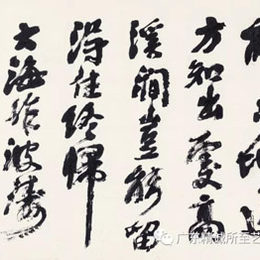 方知出處高
溪澗豈能留
得住終歸
大海作波濤
广东精诚所至艺